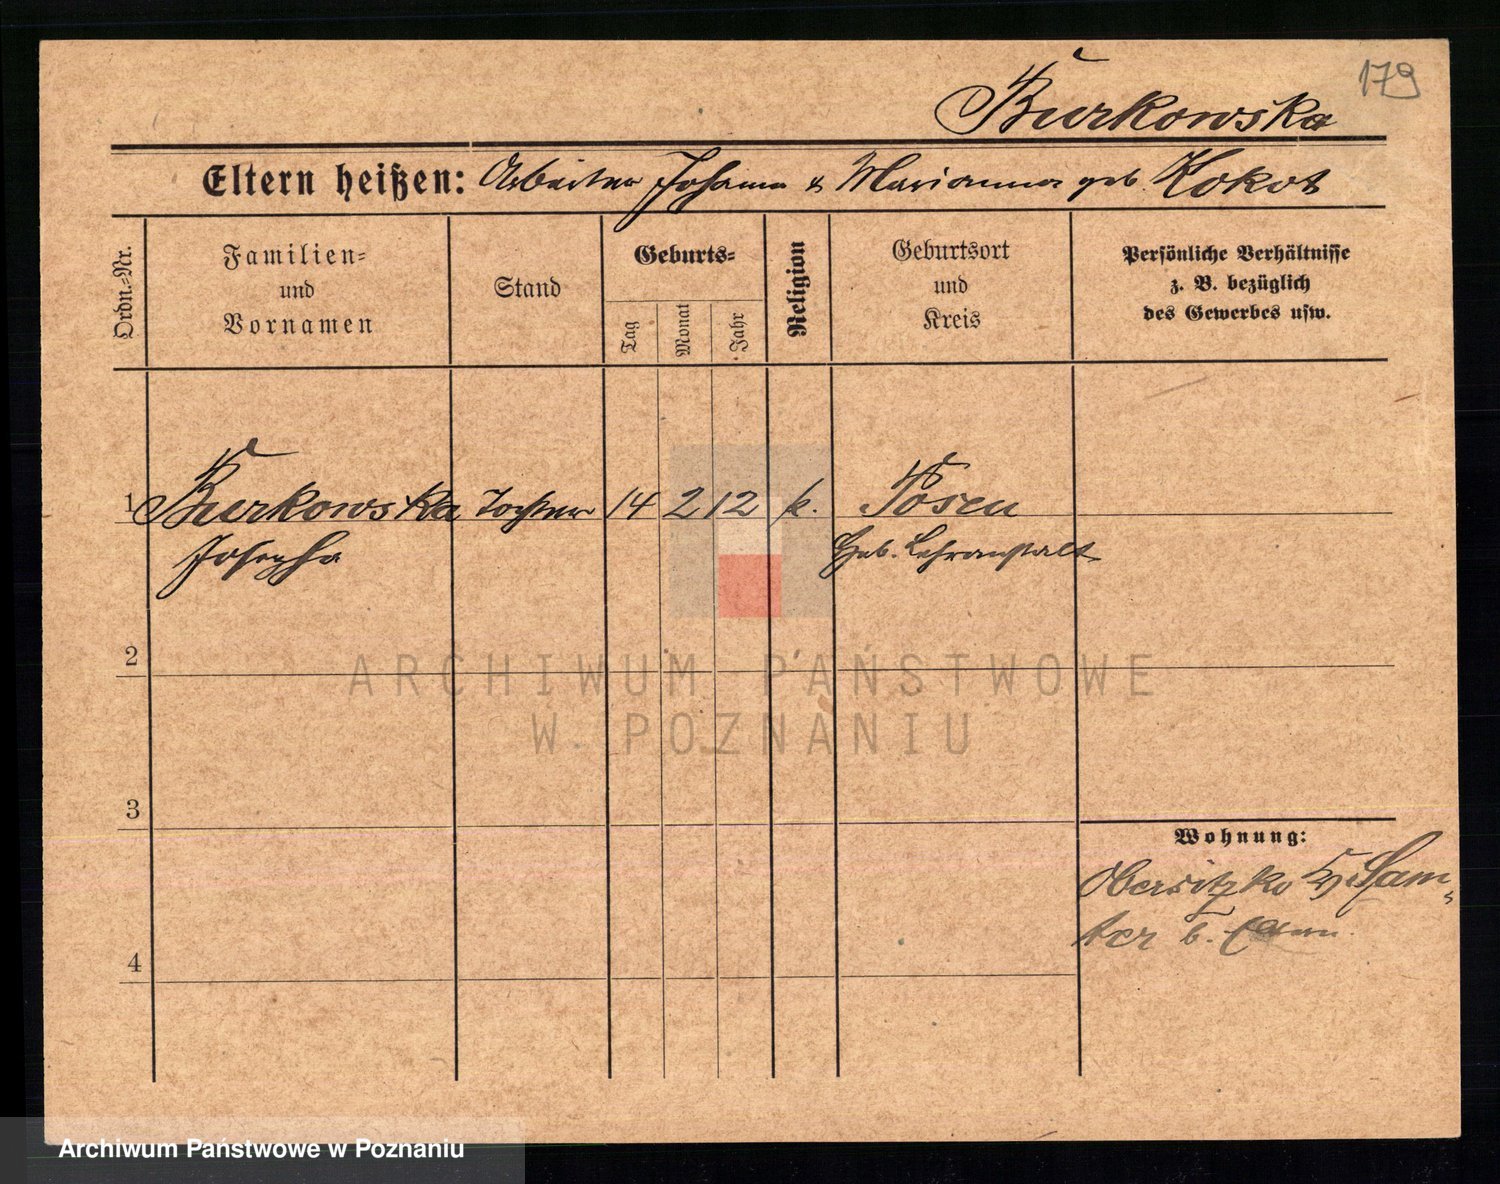 179
Burkowska
Eltern heißen: Arbeiter Johann & Marianna geb. Kokot
Ordn.-Nr.
Familien-
und
Vornamen
Stand
Geburts-
Tag
Monat
Jahr
Religion
Geburtsort
und
Kreis
Persönliche Verhältnisse
z. B. bezüglich
des Gewerbes usw.
1 Burkowska Tochter 14 2 12 k. Posen
Josepha Heb. Lehranstalt
2
ARCHIWUM PAŃSTWOWE
W POZNANIU
3
Wohnung:
Obersitzko Kr. Sam-
ter b. Eltern
4
Archiwum Państwowe w Poznaniu